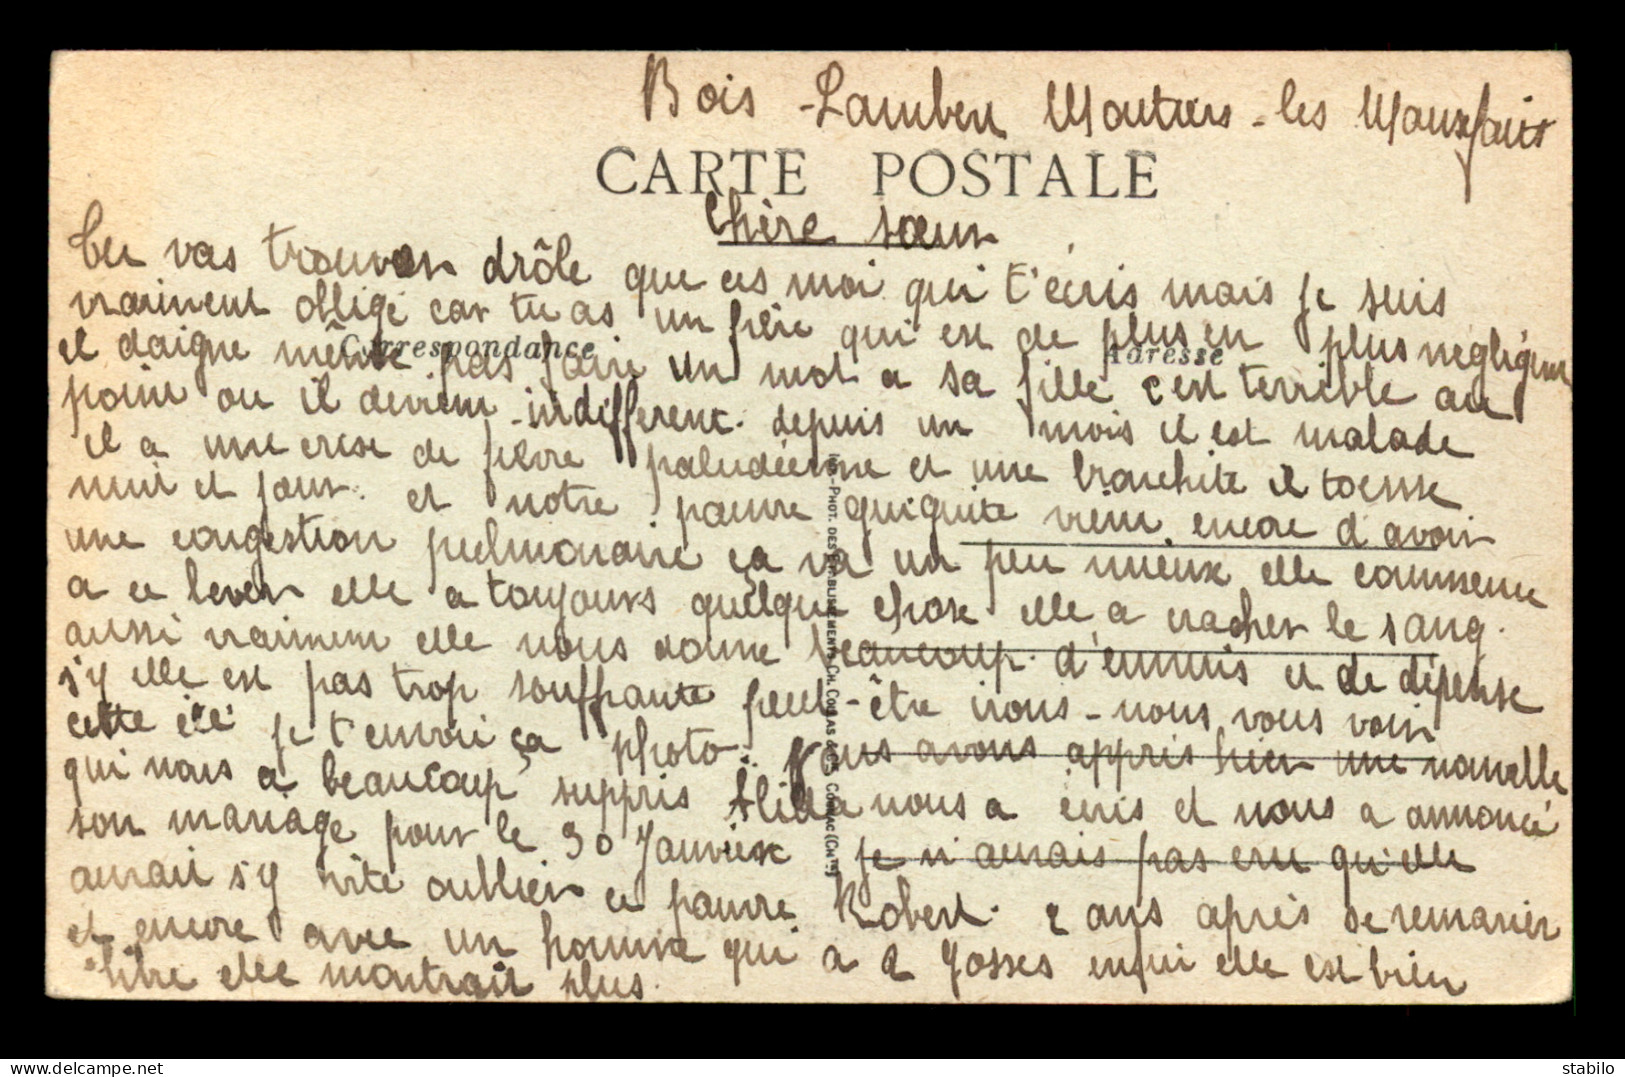 Bois-Lambert Moutiers-les Mauxfaits
CARTE POSTALE
Chère sœur
tu vas trouver drôle que ces moi qui t'écris mais je suis
vraiment obligé car tu as un frère qui est de plus en plus négligent
Correspondance
Adresse
il daigne même pas faire un mot a sa fille c'est terrible au
point ou il devient indifferent. depuis un mois il est malade
il a une crise de fièvre paludéenne et une bronchite il tousse
nuit et jour. et notre pauvre quiquite vient encore d'avoir
une congestion pulmonaire ça va un peu mieux elle commence
a ce lever elle a toujours quelque chose elle a cracher le sang.
aussi vraiment elle nous donne beaucoup d'ennuis et de dépense
s'y elle est pas trop souffrante peut-être irons-nous vous voir
cette été je t'envoi ça photo. nous avons appris hier une nouvelle
qui nous a beaucoup suppris Alida nous a écris et nous a annoncé
son mariage pour le 30 Janvier je n'aurais pas cru qu'elle
aurait s'y vite oublier ce pauvre Robert. 2 ans après se remarier
et encore avec un homme qui a 2 gosses enfin elle est bien
libre elle montrait plus.
PHOT. DES ETABLISSEMENTS CH. COLLAS & Cie, COGNAC (CHte)
stabilo